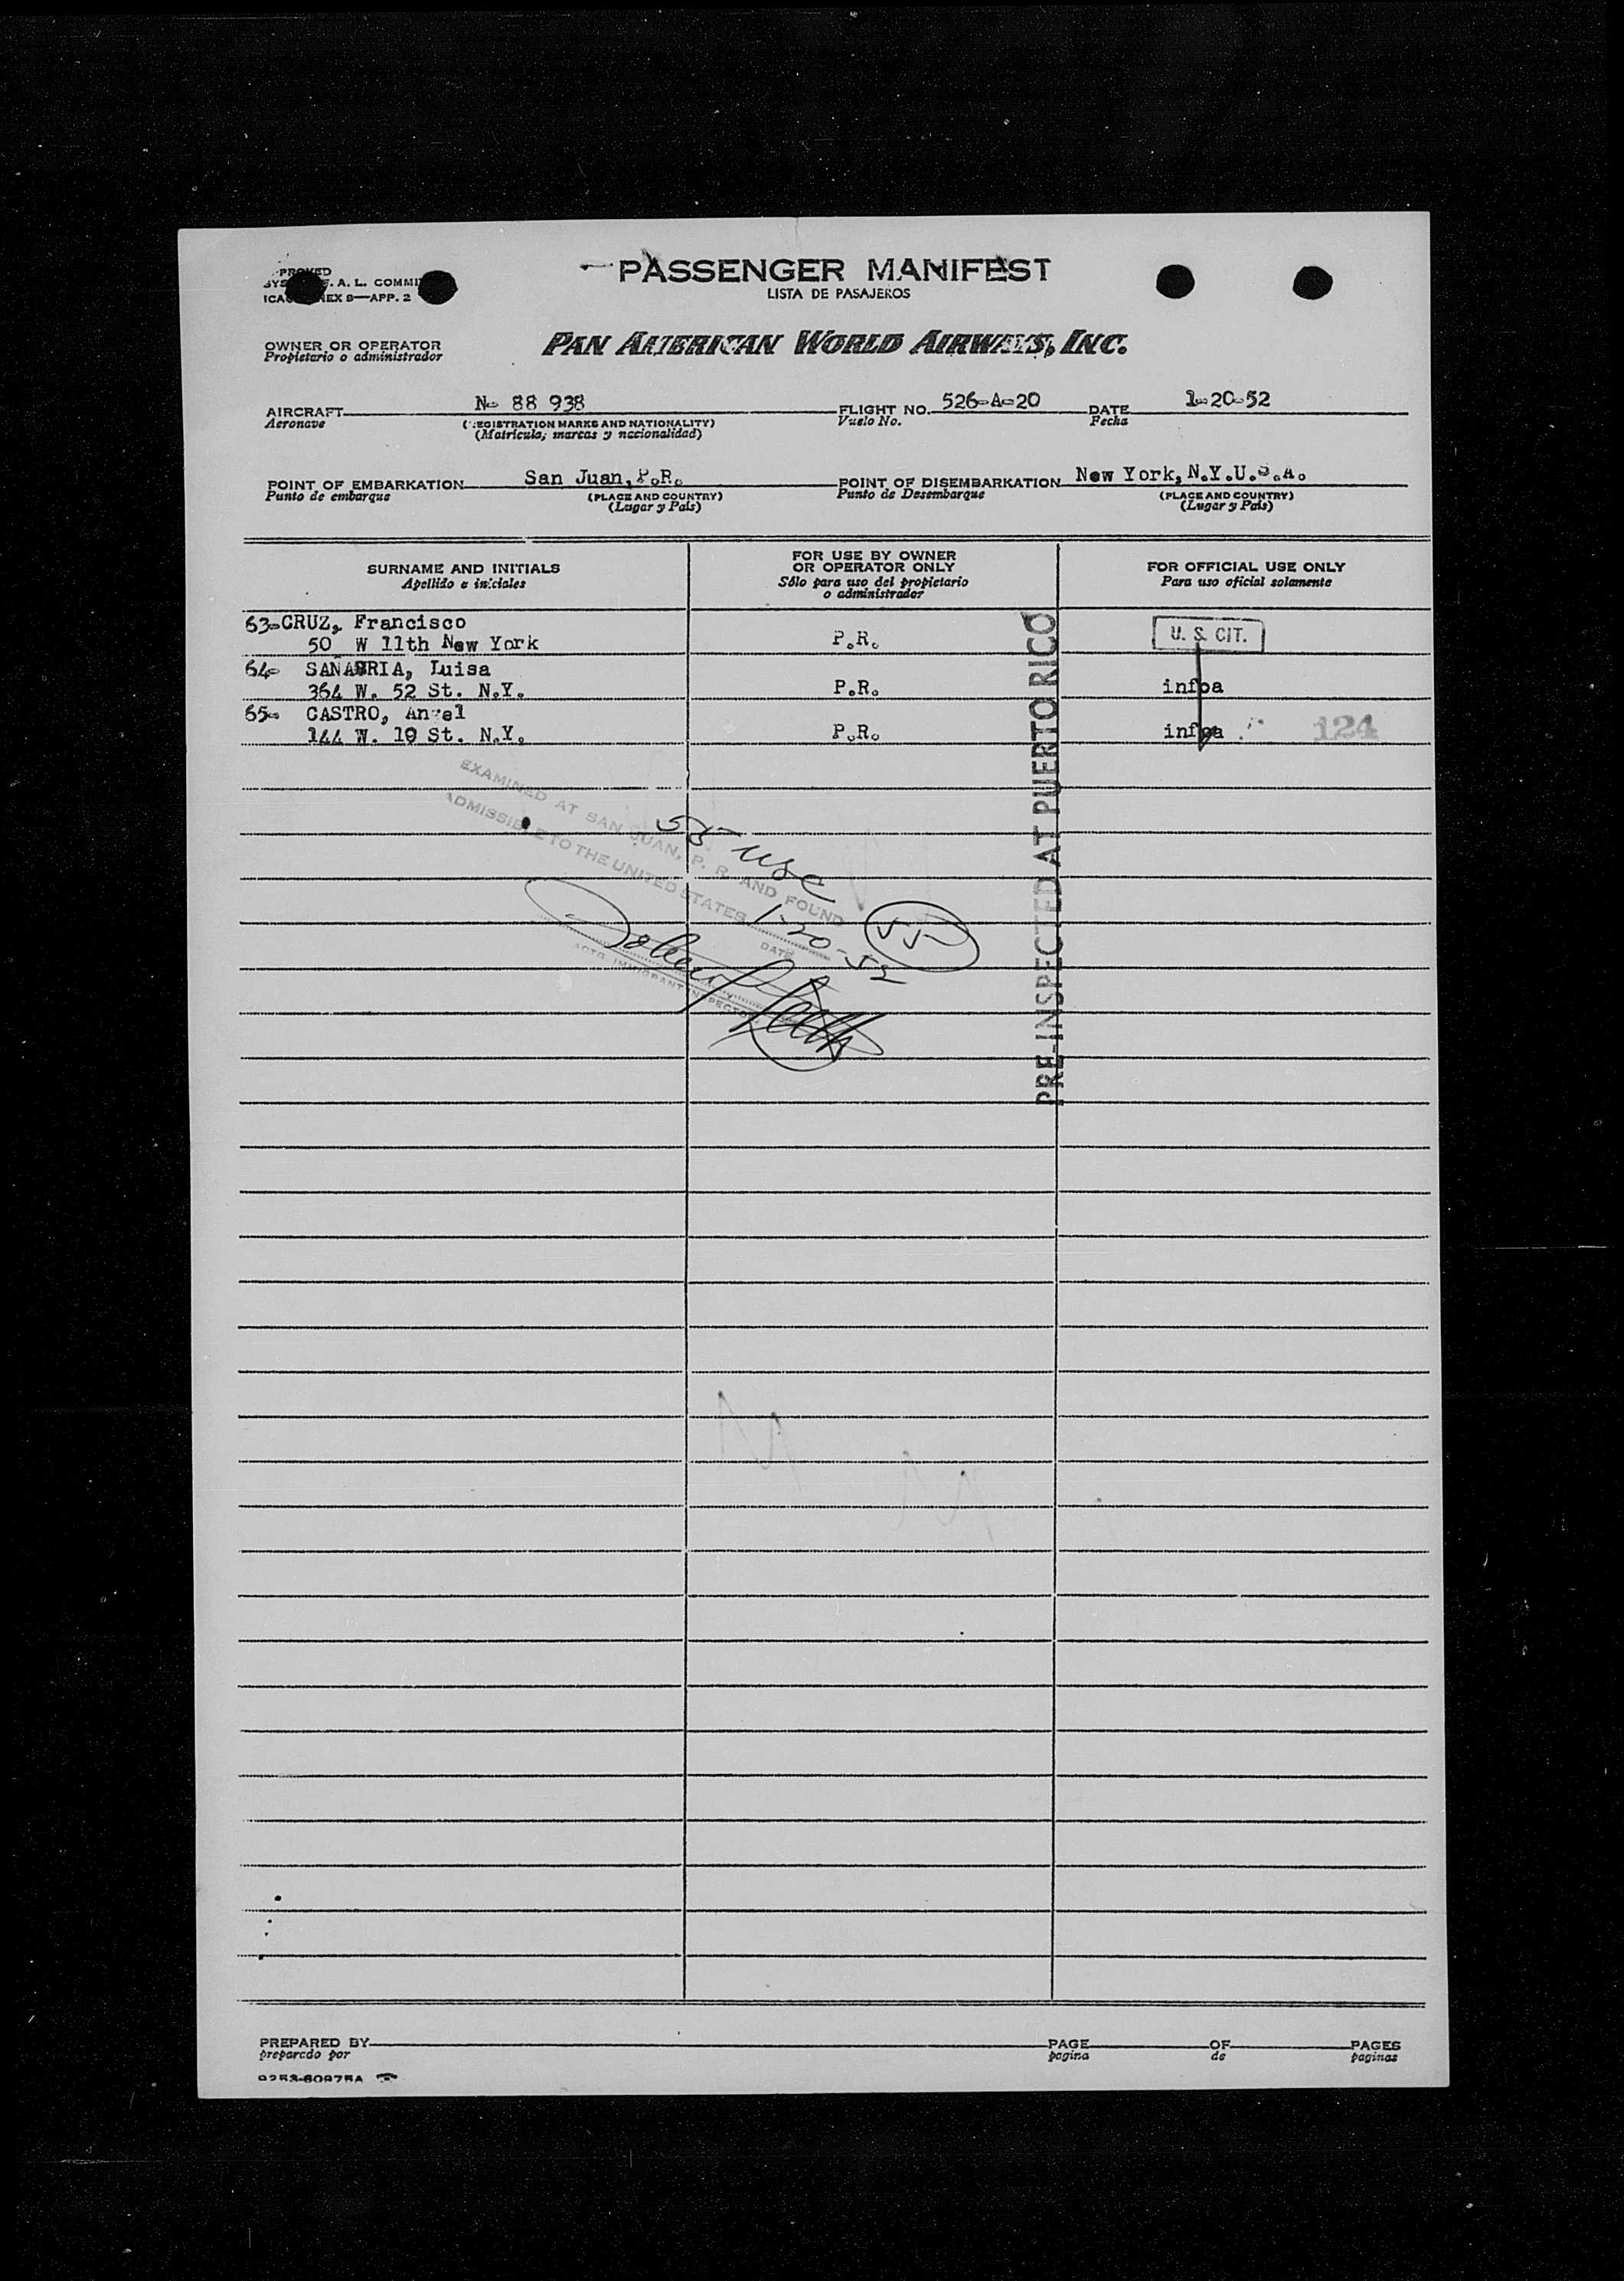 PASSENGER MANIFEST
LISTA DE PASAJEROS
F. A. L. COMMI
EX 8—APP. 2
OWNER OR OPERATOR
Propietario o administrador
PAN AMERICAN WORLD AIRWAYS, INC.
AIRCRAFT N- 88 938 FLIGHT NO. 526-A-20 DATE 1-20-52
Aeronave (REGISTRATION MARKS AND NATIONALITY) Vuelo No. Fecha
(Matrícula, marcas y nacionalidad)
POINT OF EMBARKATION San Juan, P.R. POINT OF DISEMBARKATION New York, N.Y.U.S.A.
Punto de embarque (PLACE AND COUNTRY) Punto de Desembarque (PLACE AND COUNTRY)
(Lugar y País) (Lugar y País)
SURNAME AND INITIALS
Apellido e iniciales
FOR USE BY OWNER
OR OPERATOR ONLY
Sólo para uso del propietario
o administrador
FOR OFFICIAL USE ONLY
Para uso oficial solamente
63-CRUZ, Francisco
50 W 11th New York P.R. U. S. CIT.
64- SANABRIA, Luisa
364 W. 52 St. N.Y. P.R. infoa
65- CASTRO, Angel
144 W. 19 St. N.Y. P.R. infoa 124
PRE-INSPECTED AT PUERTO RICO
EXAMINED AT SAN JUAN, P. R. AND FOUND
ADMISSIBLE TO THE UNITED STATES 1-20-52
DATE
IMMIGRANT INSPECTOR
55 usc
55
PREPARED BY PAGE OF PAGES
preparado por pagina de paginas